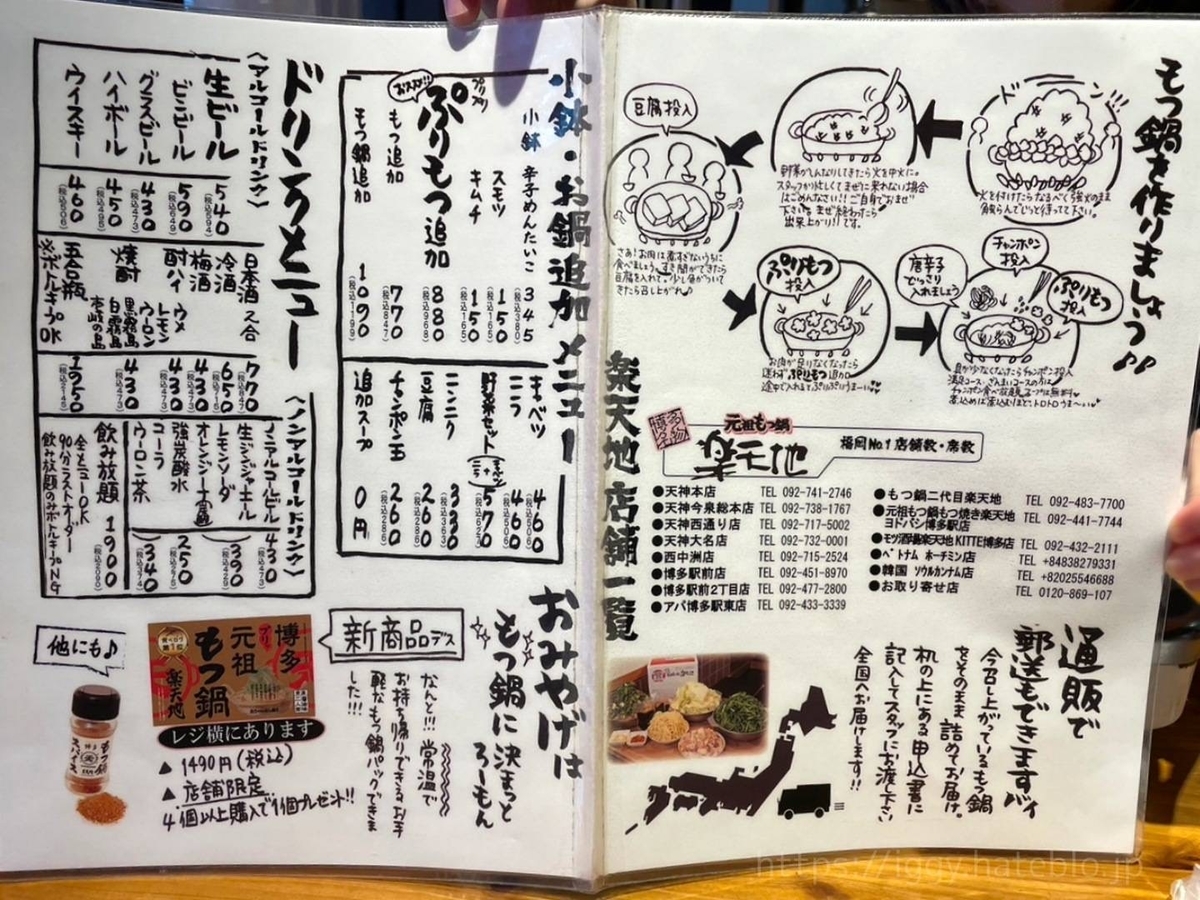 もつ鍋を作りましょう♪♪
ドーン!!!
火を付けたらなるべく強火のまま
触らんでじっと待ってて下さい。
野菜がしんなりしてきたら火を中火に。
スタッフが忙しくてまぜに来れない場合
はごめんなさい!!ご自身でおまぜ
下さい。まぜ終わったら
出来上がり!!です。
豆腐投入
さあ!お肉は煮すぎないうちに
食べましょう。すき間ができたら
豆腐を入れて。少し色がついて
きたら召し上がれ♪
ぷりもつ
投入
お肉が足りなくなったら
迷わずぷりもつ追加
途中で入れてもぷりぷりうまーい
唐辛子
どっさり
入れましょう
チャンポン
投入
ぷりもつ
投入
具が少なくなったらチャンポン投入
満足コース・ざんまいコースの方は
チャンポン食べ放題
煮込めば煮込むほど、トロトロうまーい
楽天地店舗一覧
博多名物
元祖もつ鍋
楽天地
福岡No.1店舗数・席数
●天神本店 TEL 092-741-2746
●天神今泉総本店 TEL 092-738-1767
●天神西通り店 TEL 092-717-5002
●天神大名店 TEL 092-732-0001
●西中洲店 TEL 092-715-2524
●博多駅前店 TEL 092-451-8970
●博多駅前2丁目店 TEL 092-477-2800
●アパ博多駅東店 TEL 092-433-3339
●もつ鍋二代目楽天地 TEL 092-483-7700
●元祖もつ鍋もつ焼き楽天地
ヨドバシ博多駅店 TEL 092-441-7744
●モツ酒場楽天地 KITTE博多店 TEL 092-432-2111
●ベトナム ホーチミン店 TEL +84838279331
●韓国 ソウルカンナム店 TEL +82025546688
●お取り寄せ店 TEL 0120-869-107
通販で
郵送もできますバイ
今召し上がっているもつ鍋
をそのまま詰めてお届け。
机の上にある申込書に
記入してスタッフにお渡し下さい
全国へお届けします!!
小鉢・お鍋追加メニュー
小鉢 辛子めんたいこ 345(税込380)
スモツ 150(税込165)
キムチ 150(税込165)
プリップリ
ぷりもつ追加 880(税込968)
おススメ!!
もつ追加 770(税込847)
もつ鍋追加 1090(税込1199)
キャベツ 460(税込506)
ニラ 460(税込506)
野菜セット(キャベツ+ニラ) 570(税込627)
ニンニク 330(税込363)
豆腐 260(税込286)
チャンポン玉 260(税込286)
追加スープ 0円
ドリンクメニュー
〈アルコールドリンク〉
生ビール 540(税込594)
ビンビール 590(税込649)
グラスビール 430(税込473)
ハイボール 450(税込495)
ウイスキー 460(税込506)
日本酒 2合 770(税込847)
冷酒 650(税込715)
梅酒 430(税込473)
酎ハイ ウメ レモン ウーロン 430(税込473)
焼酎 黒霧島 白霧島 壱岐の島 430(税込473)
五合瓶 1950(税込2145)
※ボトルキープOK
〈ノンアルコールドリンク〉
ノンアルコールビール 430(税込473)
生ジンジャーエール
レモンソーダ
オレンジジュース 390(税込429)
強炭酸水 250(税込275)
コーラ
ウーロン茶 340(税込374)
飲み放題 1900(税込2090)
全メニューOK
90分ラストオーダー
飲み放題のみボトルキープNG
おみやげは
もつ鍋に決まっと
ろーもん
新商品デス
なんと!!!常温で
お持ち帰りできるお手
軽なもつ鍋パックできま
した!!!
博多
元祖
もつ鍋
楽天地
レジ横にあります
▲1490円(税込)
▲店舗限定
4個以上購入で1個プレゼント!!
他にも♪
もつ鍋
スパイス
https://iggy.hateblo.jp